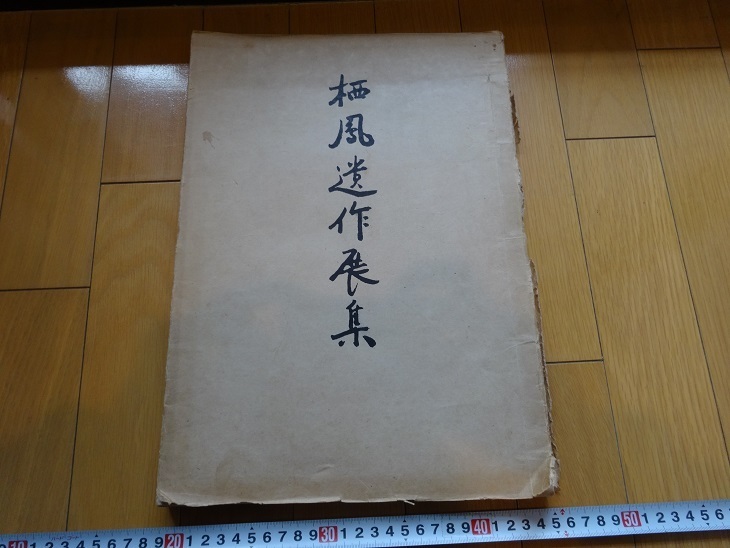 栖鳳遺作展集
10 1 2 3 4 5 6 7 8 9 20 1 2 3 4 5 6 7 8 9 30 1 2 3 4 5 6 7 8 9 40 1 2 3 4 5 6 7 8 9 50 1 2 3 4 5 6